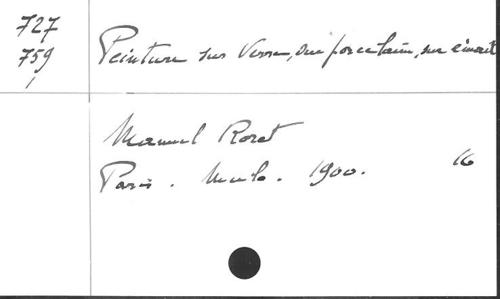 727
759
/
Peinture sur verre, sur porcelaine, sur émail
Manuel Roret
Paris. Mulo. 1900. 16